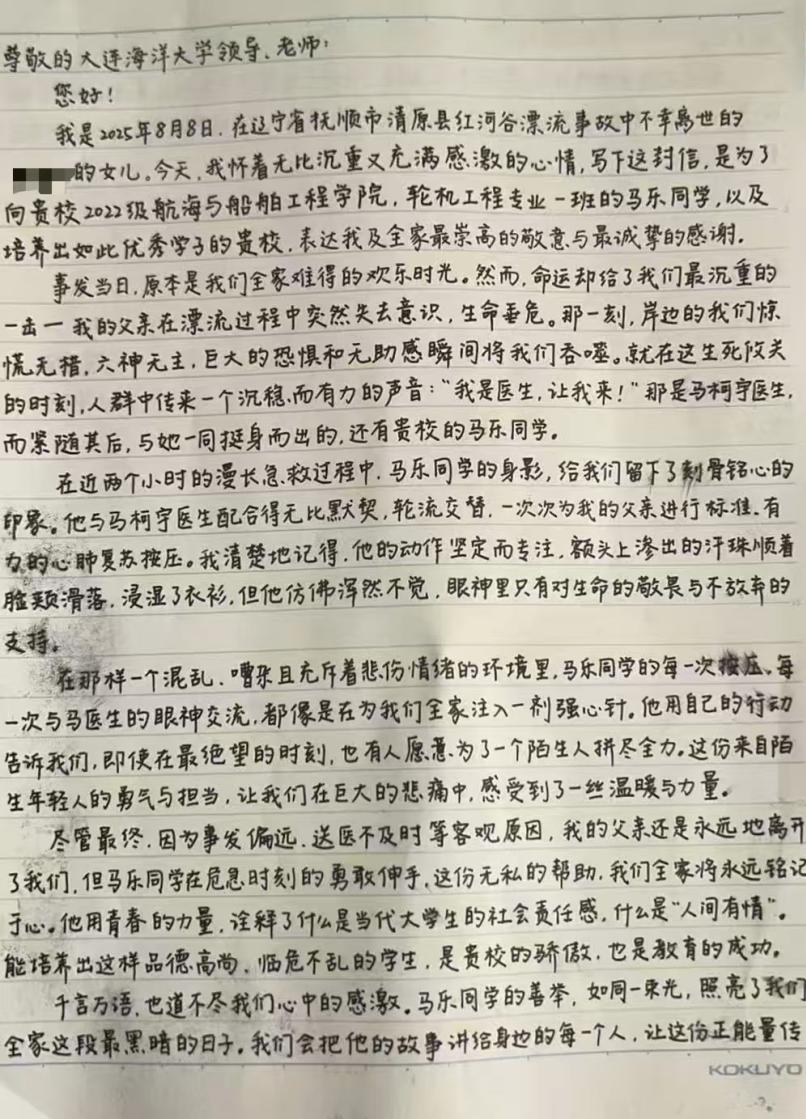 尊敬的大连海洋大学领导、老师:
您好!
我是2025年8月8日,在辽宁省抚顺市清原县红河谷漂流事故中不幸离世的
的女儿。今天,我怀着无比沉重又充满感激的心情,写下这封信,是为了
向贵校2022级航海与船舶工程学院,轮机工程专业一班的马乐同学,以及
培养出如此优秀学子的贵校,表达我及全家最崇高的敬意与最诚挚的感谢。
事发当日,原本是我们全家难得的欢乐时光。然而,命运却给了我们最沉重的
一击一我的父亲在漂流过程中突然失去意识,生命垂危。那一刻,岸边的我们惊
慌无措,六神无主,巨大的恐惧和无助感瞬间将我们吞噬。就在这生死攸关
的时刻,人群中传来一个沉稳而有力的声音:“我是医生,让我来!”那是马柯宇医生,
而紧随其后,与她一同挺身而出的,还有贵校的马乐同学。
在近两个小时的漫长急救过程中,马乐同学的身影,给我们留下了刻骨铭心的
印象。他与马柯宇医生配合得无比默契,轮流交替,一次次为我的父亲进行标准、有
力的心肺复苏按压。我清楚地记得,他的动作坚定而专注,额头上渗出的汗珠顺着
脸颊滑落,浸湿了衣衫,但他仿佛浑然不觉,眼神里只有对生命的敬畏与不放弃的
支持。
在那样一个混乱、嘈杂且充斥着悲伤情绪的环境里,马乐同学的每一次按压、每
一次与马医生的眼神交流,都像是在为我们全家注入一剂强心针。他用自己的行动
告诉我们,即使在最绝望的时刻,也有人愿意为了一个陌生人拼尽全力。这份来自陌
生年轻人的勇气与担当,让我们在巨大的悲痛中,感受到了一丝温暖与力量。
尽管最终,因为事发偏远、送医不及时等客观原因,我的父亲还是永远地离开
了我们,但马乐同学在危急时刻的勇敢伸手,这份无私的帮助,我们全家将永远铭记
于心。他用青春的力量,诠释了什么是当代大学生的社会责任感,什么是“人间有情”。
能培养出这样品德高尚、临危不乱的学生,是贵校的骄傲,也是教育的成功。
千言万语,也道不尽我们心中的感激。马乐同学的善举,如同一束光,照亮了我们
全家这段最黑暗的日子。我们会把他的故事讲给身边的每一个人,让这份正能量传
KOKUYO